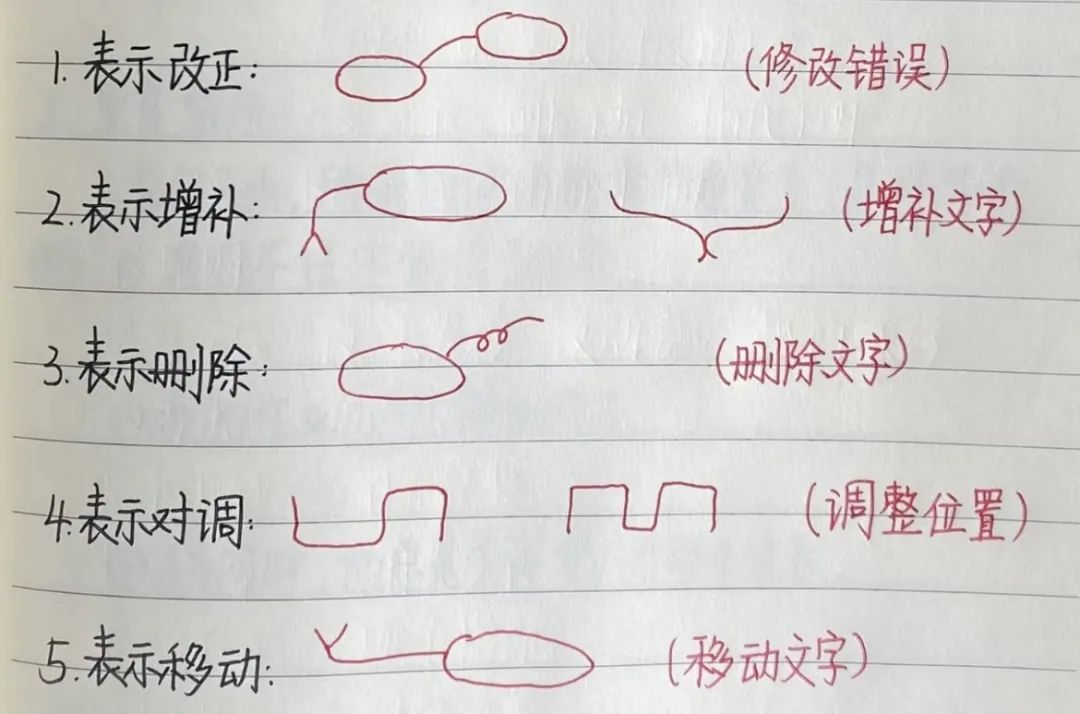 1. 表示改正: (修改错误)
2. 表示增补: (增补文字)
3. 表示删除: (删除文字)
4. 表示对调: (调整位置)
5. 表示移动: (移动文字)